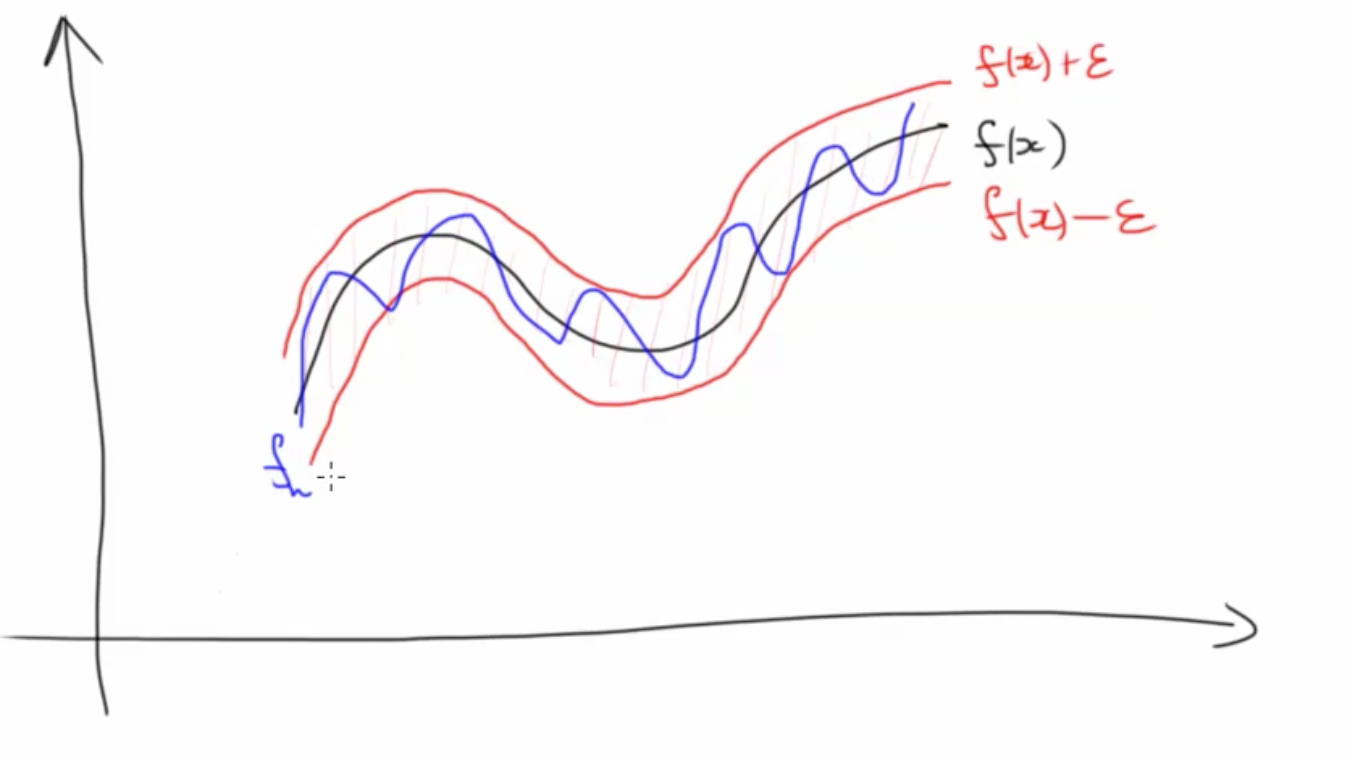 f(x)+ε
f(x)
f(x)−ε
fn